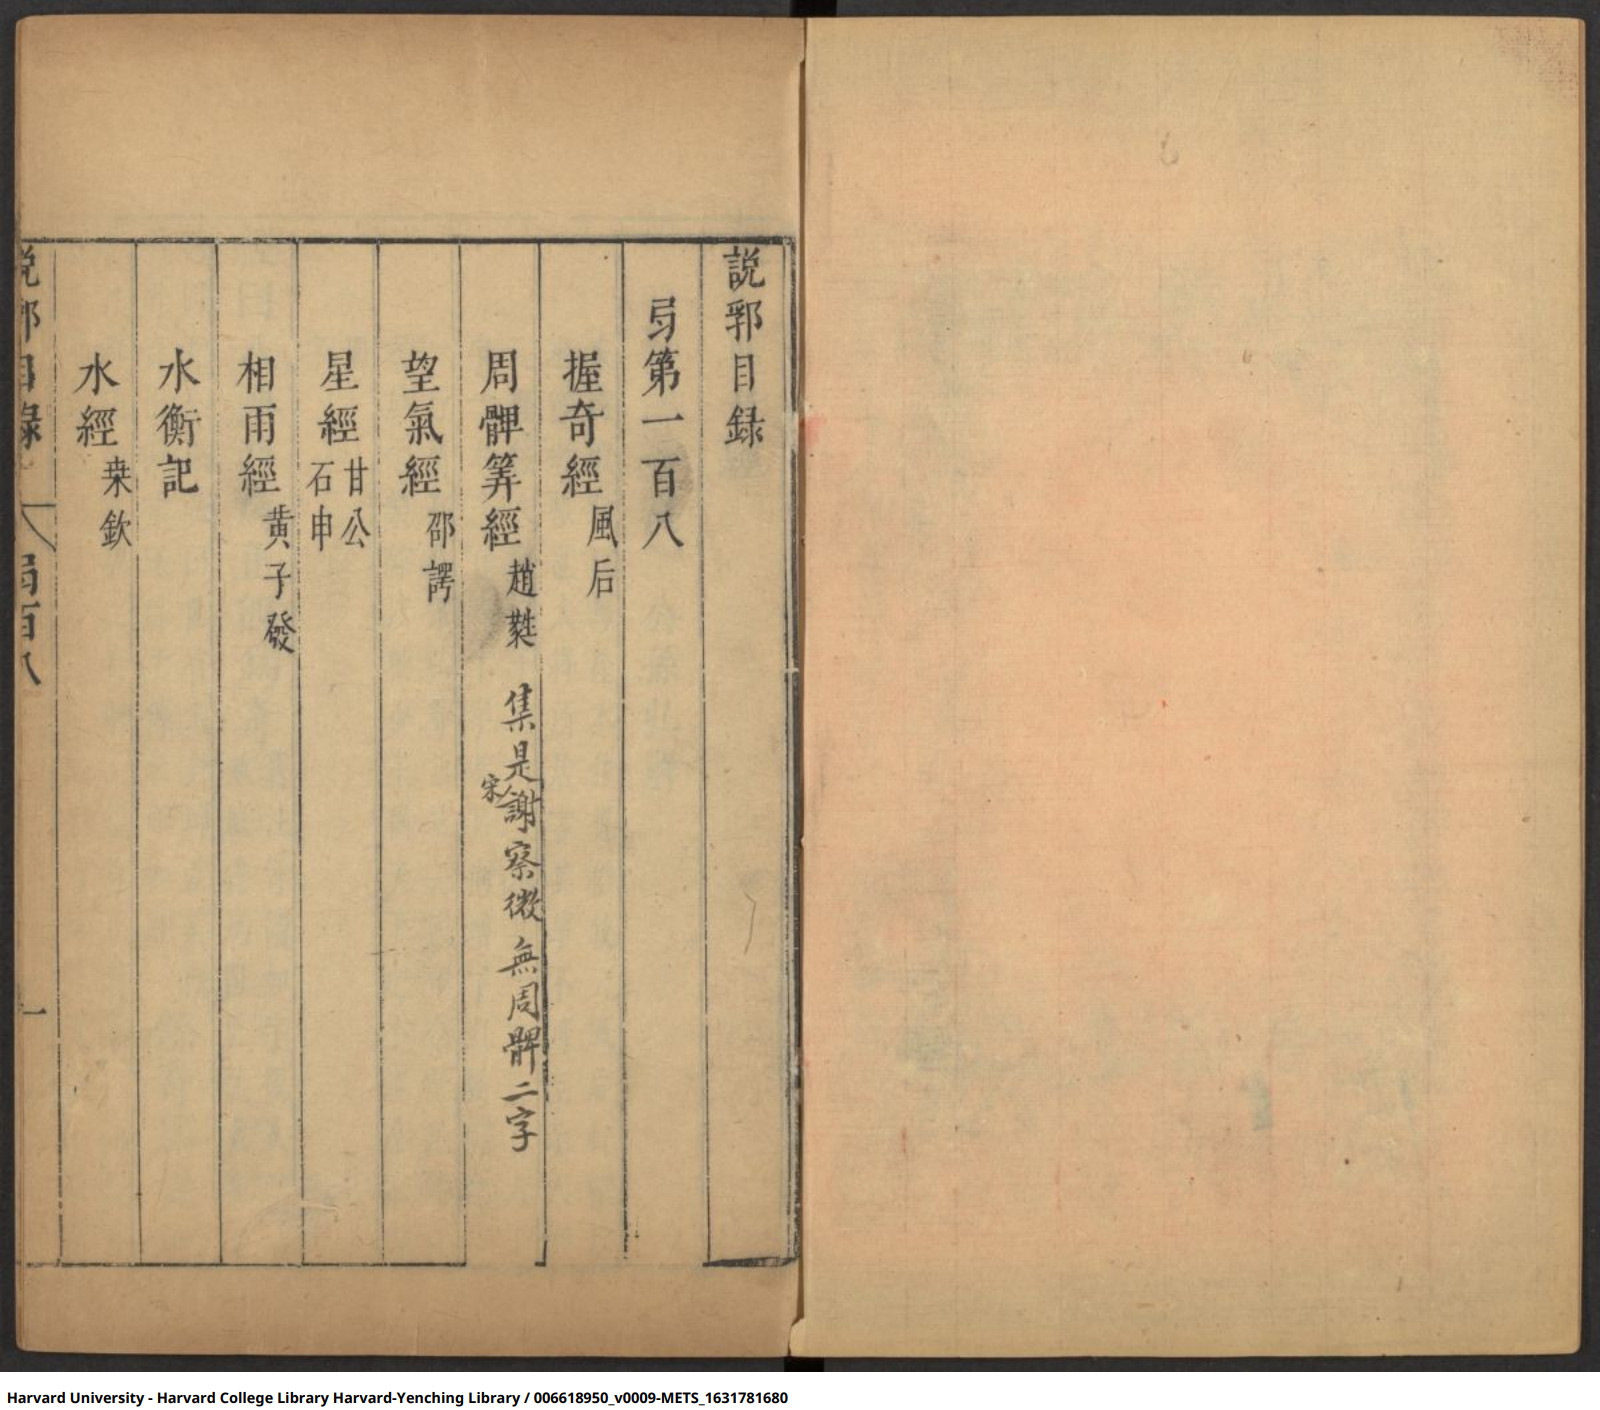 說郛目録
弓第一百八
握奇經風后
周髀筭經趙𡠉 集是宋人謝察微無周髀二字
望氣經邵諤
星經甘公石申
相雨經黄子發
水衡記
水經桒欽
說郛目錄 弓百八 一
Harvard University - Harvard College Library Harvard-Yenching Library / 006618950_v0009-METS_1631781680